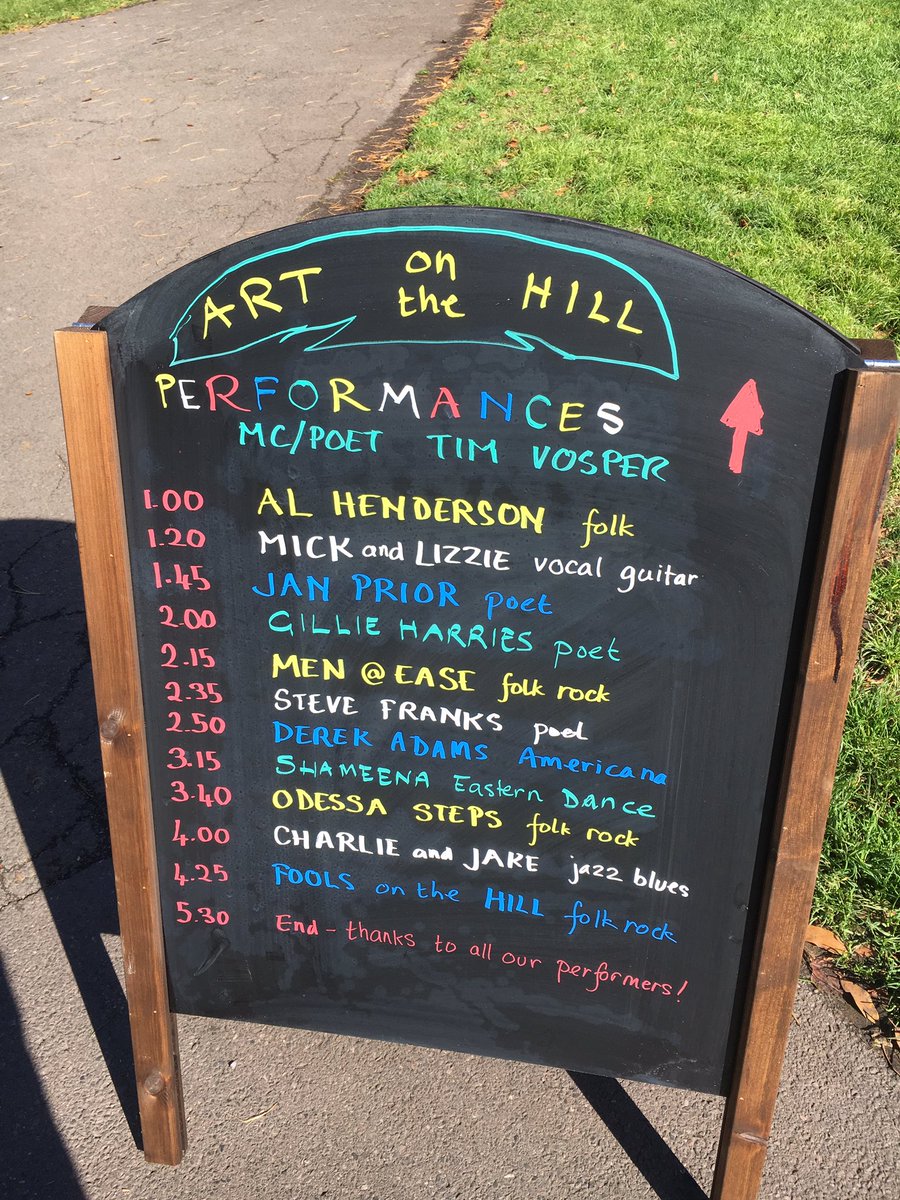 ART on the HILL
PERFORMANCES
MC/POET TIM VOSPER
1.00 AL HENDERSON folk
1.20 MICK and LIZZIE vocal guitar
1.45 JAN PRIOR poet
2.00 GILLIE HARRIES poet
2.15 MEN @ EASE folk rock
2.35 STEVE FRANKS poet
2.50 DEREK ADAMS Americana
3.15 SHAMEENA Eastern Dance
3.40 ODESSA STEPS folk rock
4.00 CHARLIE and JAKE jazz blues
4.25 FOOLS on the HILL folk rock
5.30 End - thanks to all our performers!